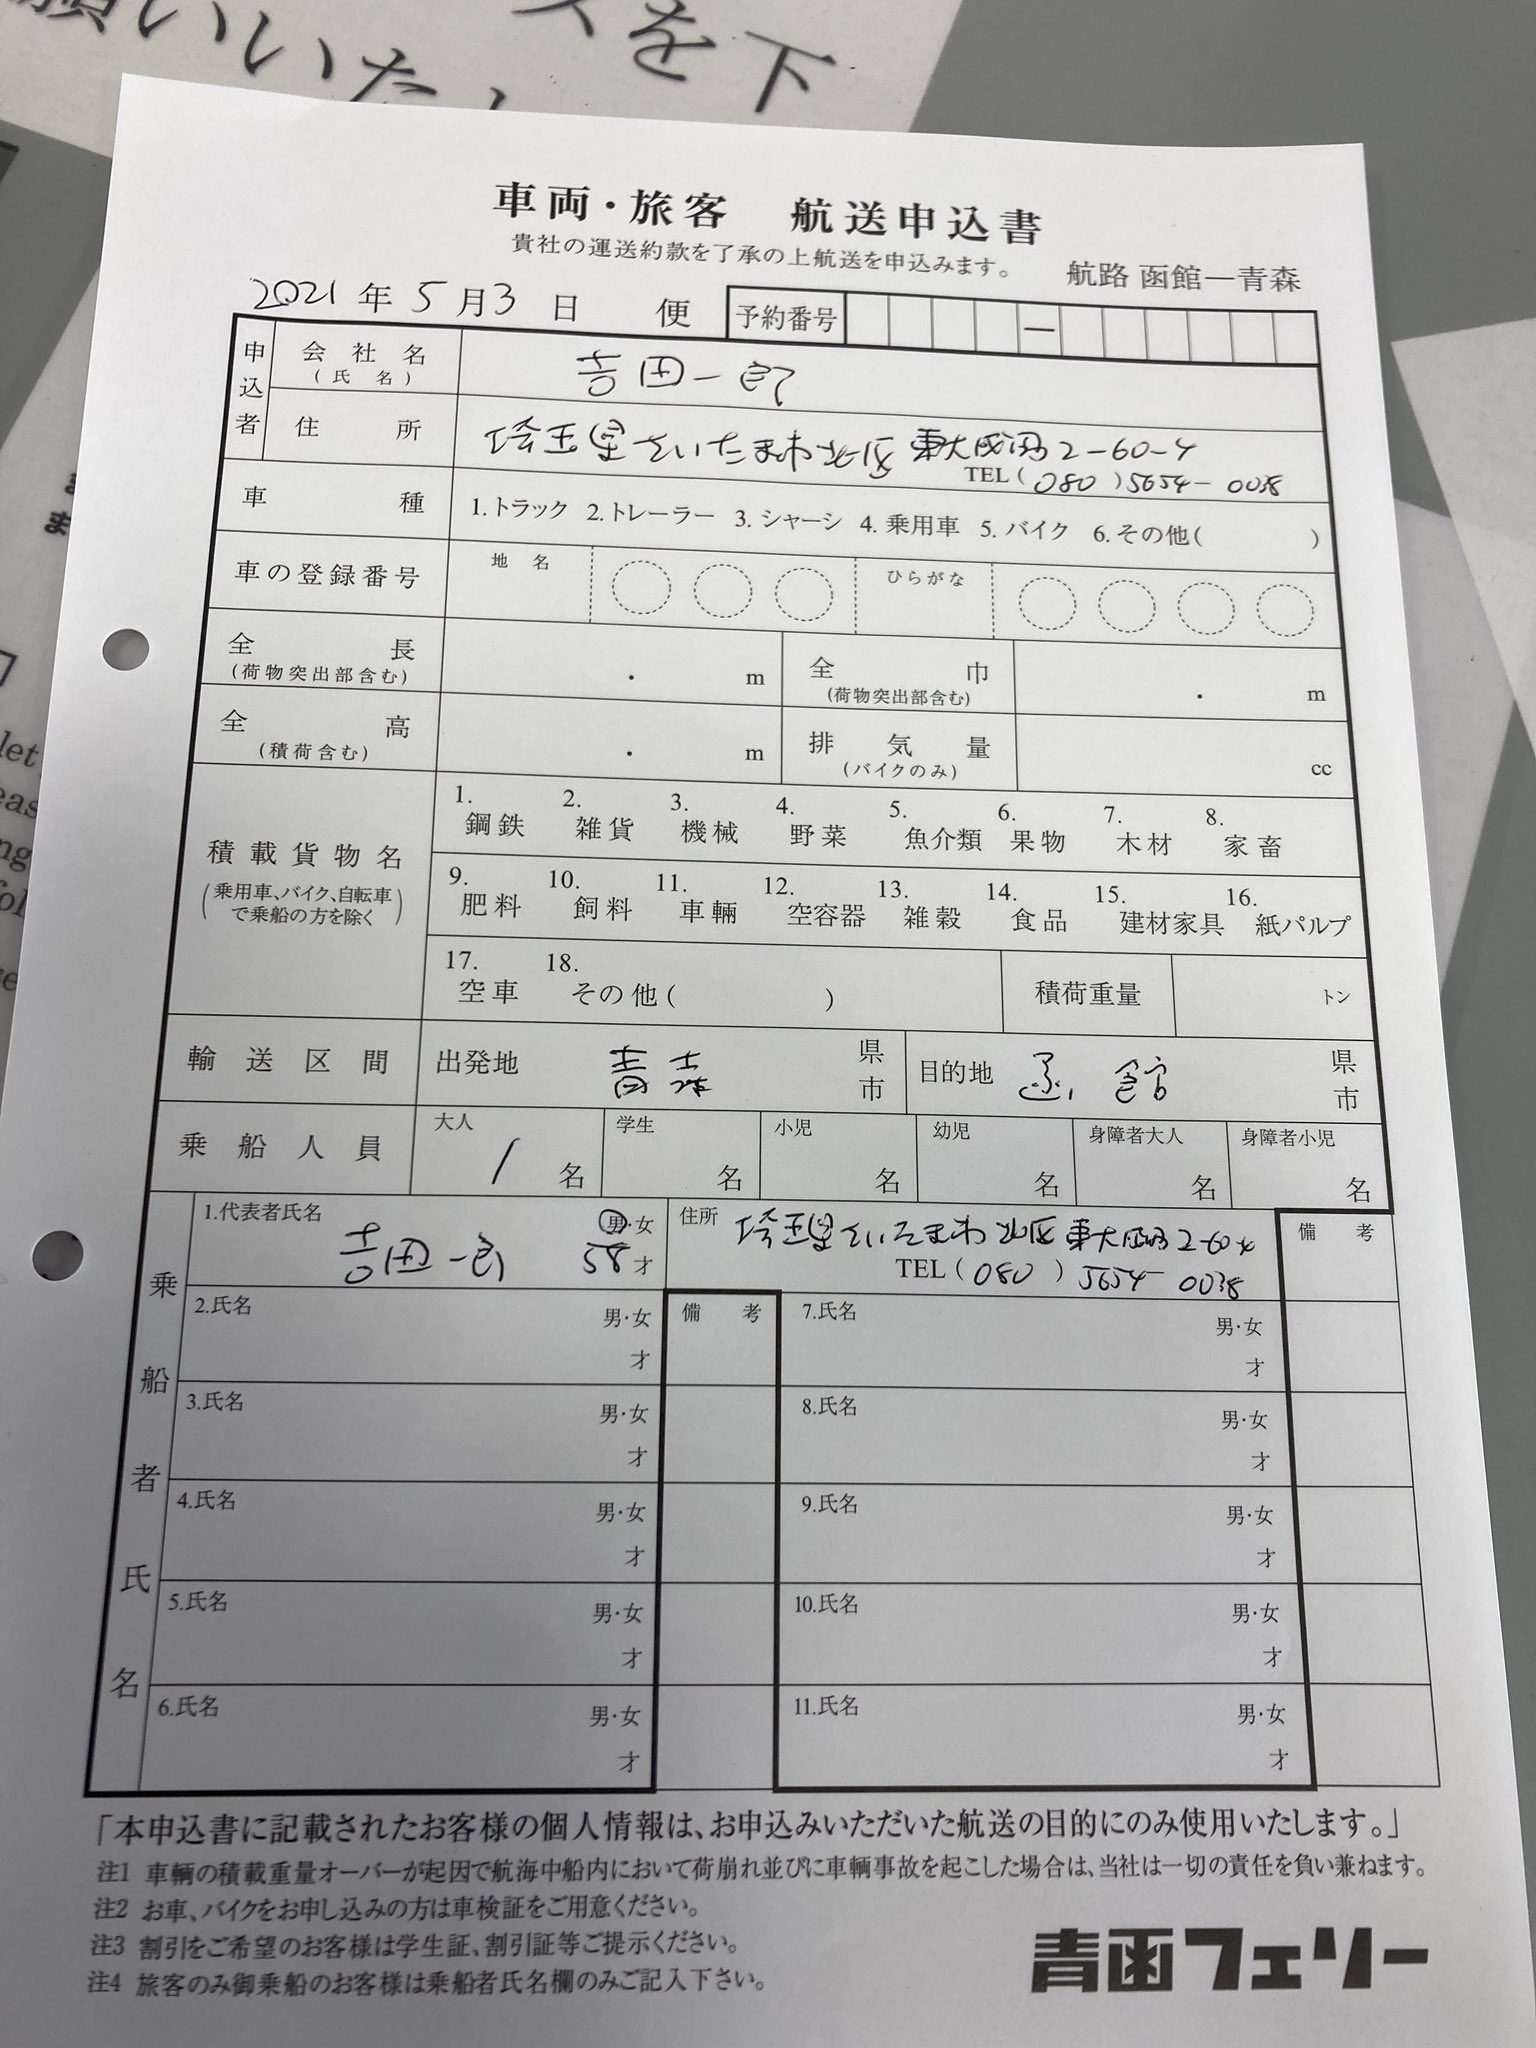 願いいた
スを下
車両・旅客 航送申込書
貴社の運送約款を了承の上航送を申込みます。 航路 函館—青森
2021年5月3日 便 予約番号 —
申込者
会社名 吉田一郎
(氏名)
住所 埼玉県さいたま市北区東大成町2-60-4
TEL(080)5654-0038
車種 1.トラック 2.トレーラー 3.シャーシ 4.乗用車 5.バイク 6.その他( )
車の登録番号 地名 ひらがな
全長 . m 全巾 . m
(荷物突出部含む) (荷物突出部含む)
全高 . m 排気量 cc
(積荷含む) (バイクのみ)
積載貨物名
(乗用車、バイク、自転車で乗船の方を除く)
1.鋼鉄 2.雑貨 3.機械 4.野菜 5.魚介類 6.果物 7.木材 8.家畜
9.肥料 10.飼料 11.車輛 12.空容器 13.雑穀 14.食品 15.建材家具 16.紙パルプ
17.空車 18.その他( ) 積荷重量 トン
輸送区間 出発地 青森 県市 目的地 函館 県市
乗船人員 大人 1名 学生 名 小児 名 幼児 名 身障者大人 名 身障者小児 名
乗船者氏名
1.代表者氏名 吉田一郎 男・女 58才 住所 埼玉県さいたま市北区東大成町2-60-4 備考
TEL(080)5654-0038
2.氏名 男・女 才 備考 7.氏名 男・女 才
3.氏名 男・女 才 8.氏名 男・女 才
4.氏名 男・女 才 9.氏名 男・女 才
5.氏名 男・女 才 10.氏名 男・女 才
6.氏名 男・女 才 11.氏名 男・女 才
「本申込書に記載されたお客様の個人情報は、お申込みいただいた航送の目的にのみ使用いたします。」
注1 車輌の積載重量オーバーが起因で航海中船内において荷崩れ並びに車輌事故を起こした場合は、当社は一切の責任を負い兼ねます。
注2 お車、バイクをお申し込みの方は車検証をご用意ください。
注3 割引をご希望のお客様は学生証、割引証等ご提示ください。
注4 旅客のみ御乗船のお客様は乗船者氏名欄のみご記入下さい。
青函フェリー